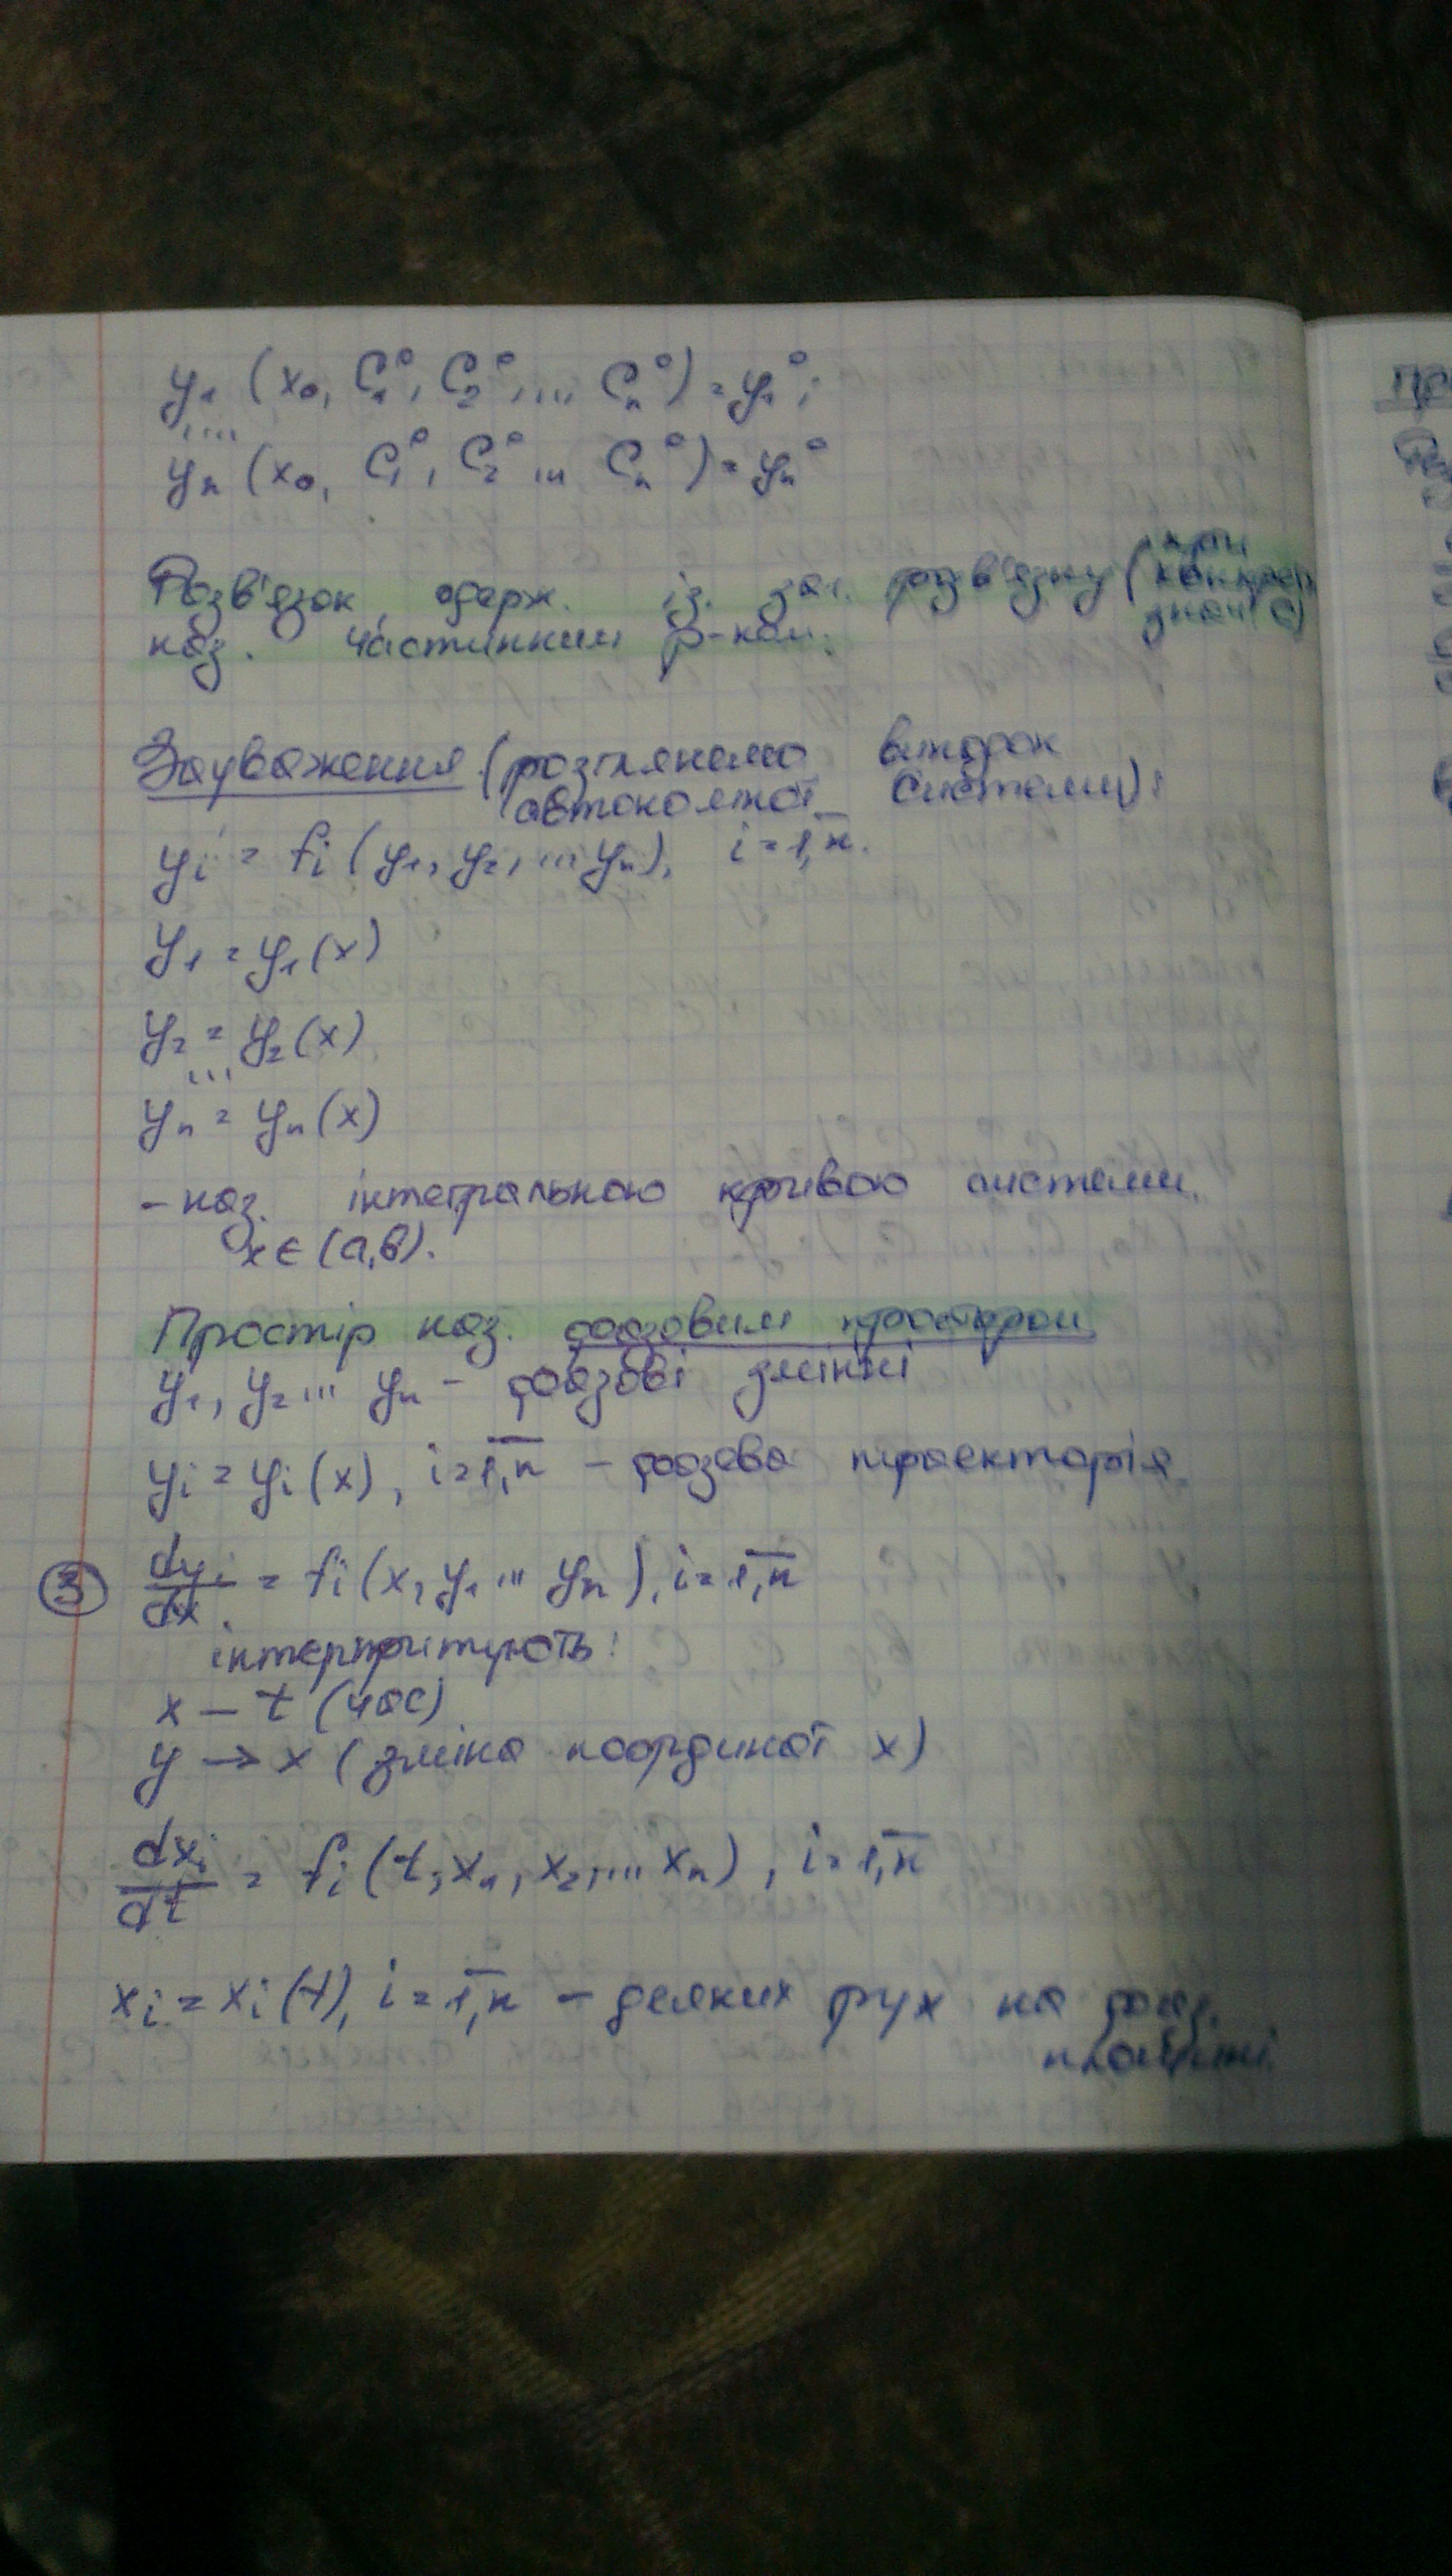 y₁ (x₀, C₁⁰, C₂⁰, ... Cₙ⁰) = y₁⁰;
....
yₙ (x₀, C₁⁰, C₂⁰ ... Cₙ⁰) = yₙ⁰
Розв'язок, одерж. із. заг. розв'язку (при конкрет. знач C)
наз. частинним р-ком.
Зауваження (розглянемо випадок
автономної системи):
yᵢ' = fᵢ (y₁, y₂, ... yₙ), i = 1,n.
y₁ = y₁(x)
y₂ = y₂(x)
...
yₙ = yₙ(x)
- наз. інтегральною кривою системи.
x ∈ (a,b).
Простір наз. фазовим простором
y₁, y₂ ... yₙ - фазові змінні
yᵢ = yᵢ(x), i = 1,n - фазова траекторія
③ dyᵢ/dx = fᵢ(x, y₁ ... yₙ), i = 1,n
інтерпритують:
x – t (час)
y → x (зміна координат x)
dxᵢ/dt = fᵢ(t, x₁, x₂, ... xₙ), i = 1,n
xᵢ = xᵢ(t), i = 1,n – деяких рух на фаз.
площині